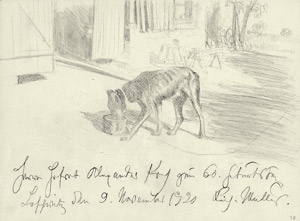 Herrn Hofrat Alexander Koch zum 60. Geburtstag
Loschwitz den 9. November 1920 Rich. Müller.